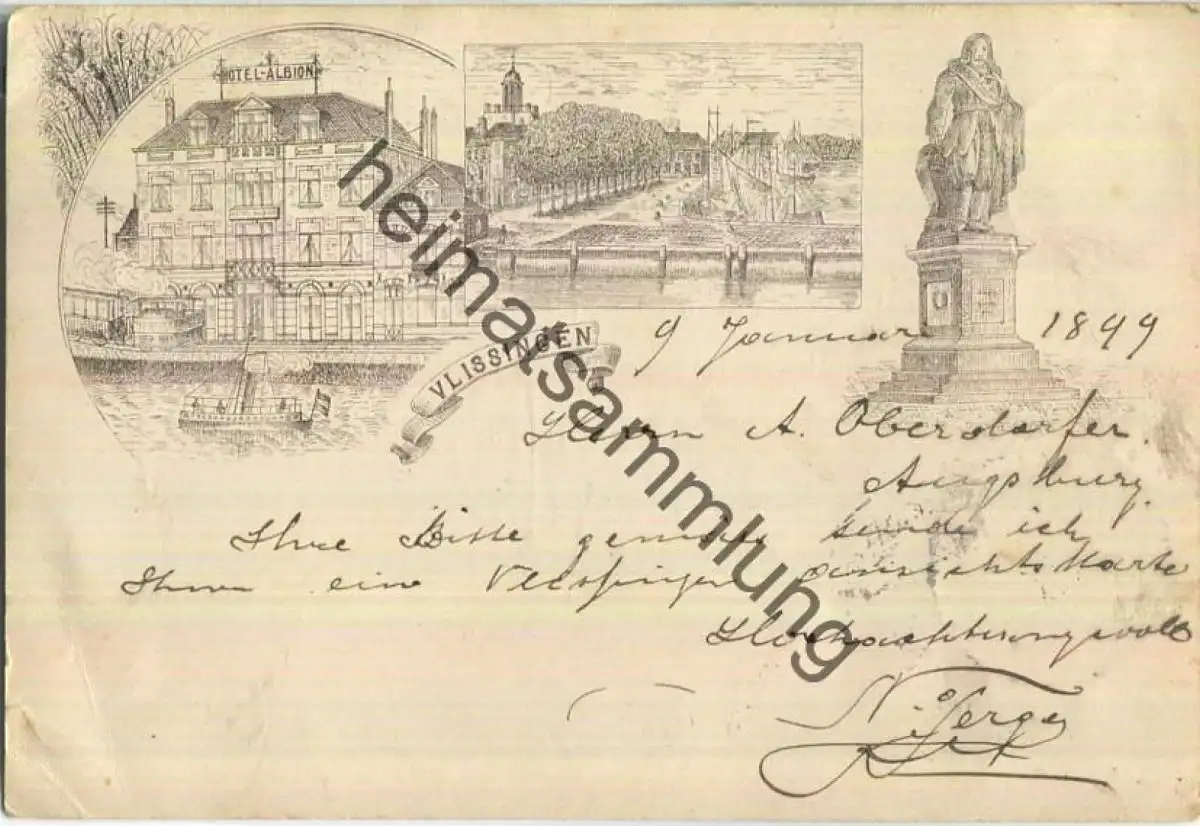 HOTEL-ALBION
VLISSINGEN
9 Januar 1899
Herrn A. Oberdorfer.
Augsburg
Ihre Bitte gemäss sende ich
Ihnen eine Vlissingen ansichtskarte
Hochachtungsvoll
N.
heimatsammlung